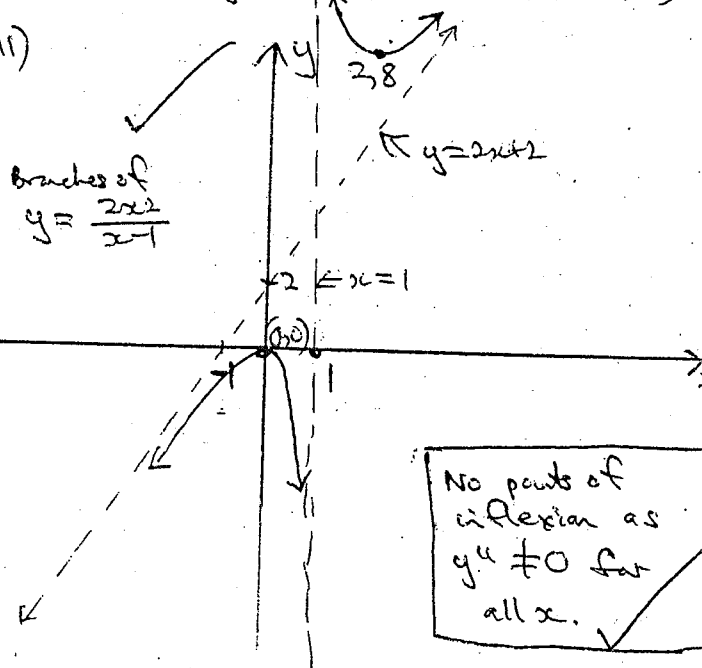 11)
y
2,8
y=2x+2
Branches of
y = 2x2
x-1
2
x=1
(0,0)
-1
1
No points of
inflexion as
y" ≠ 0 for
all x.